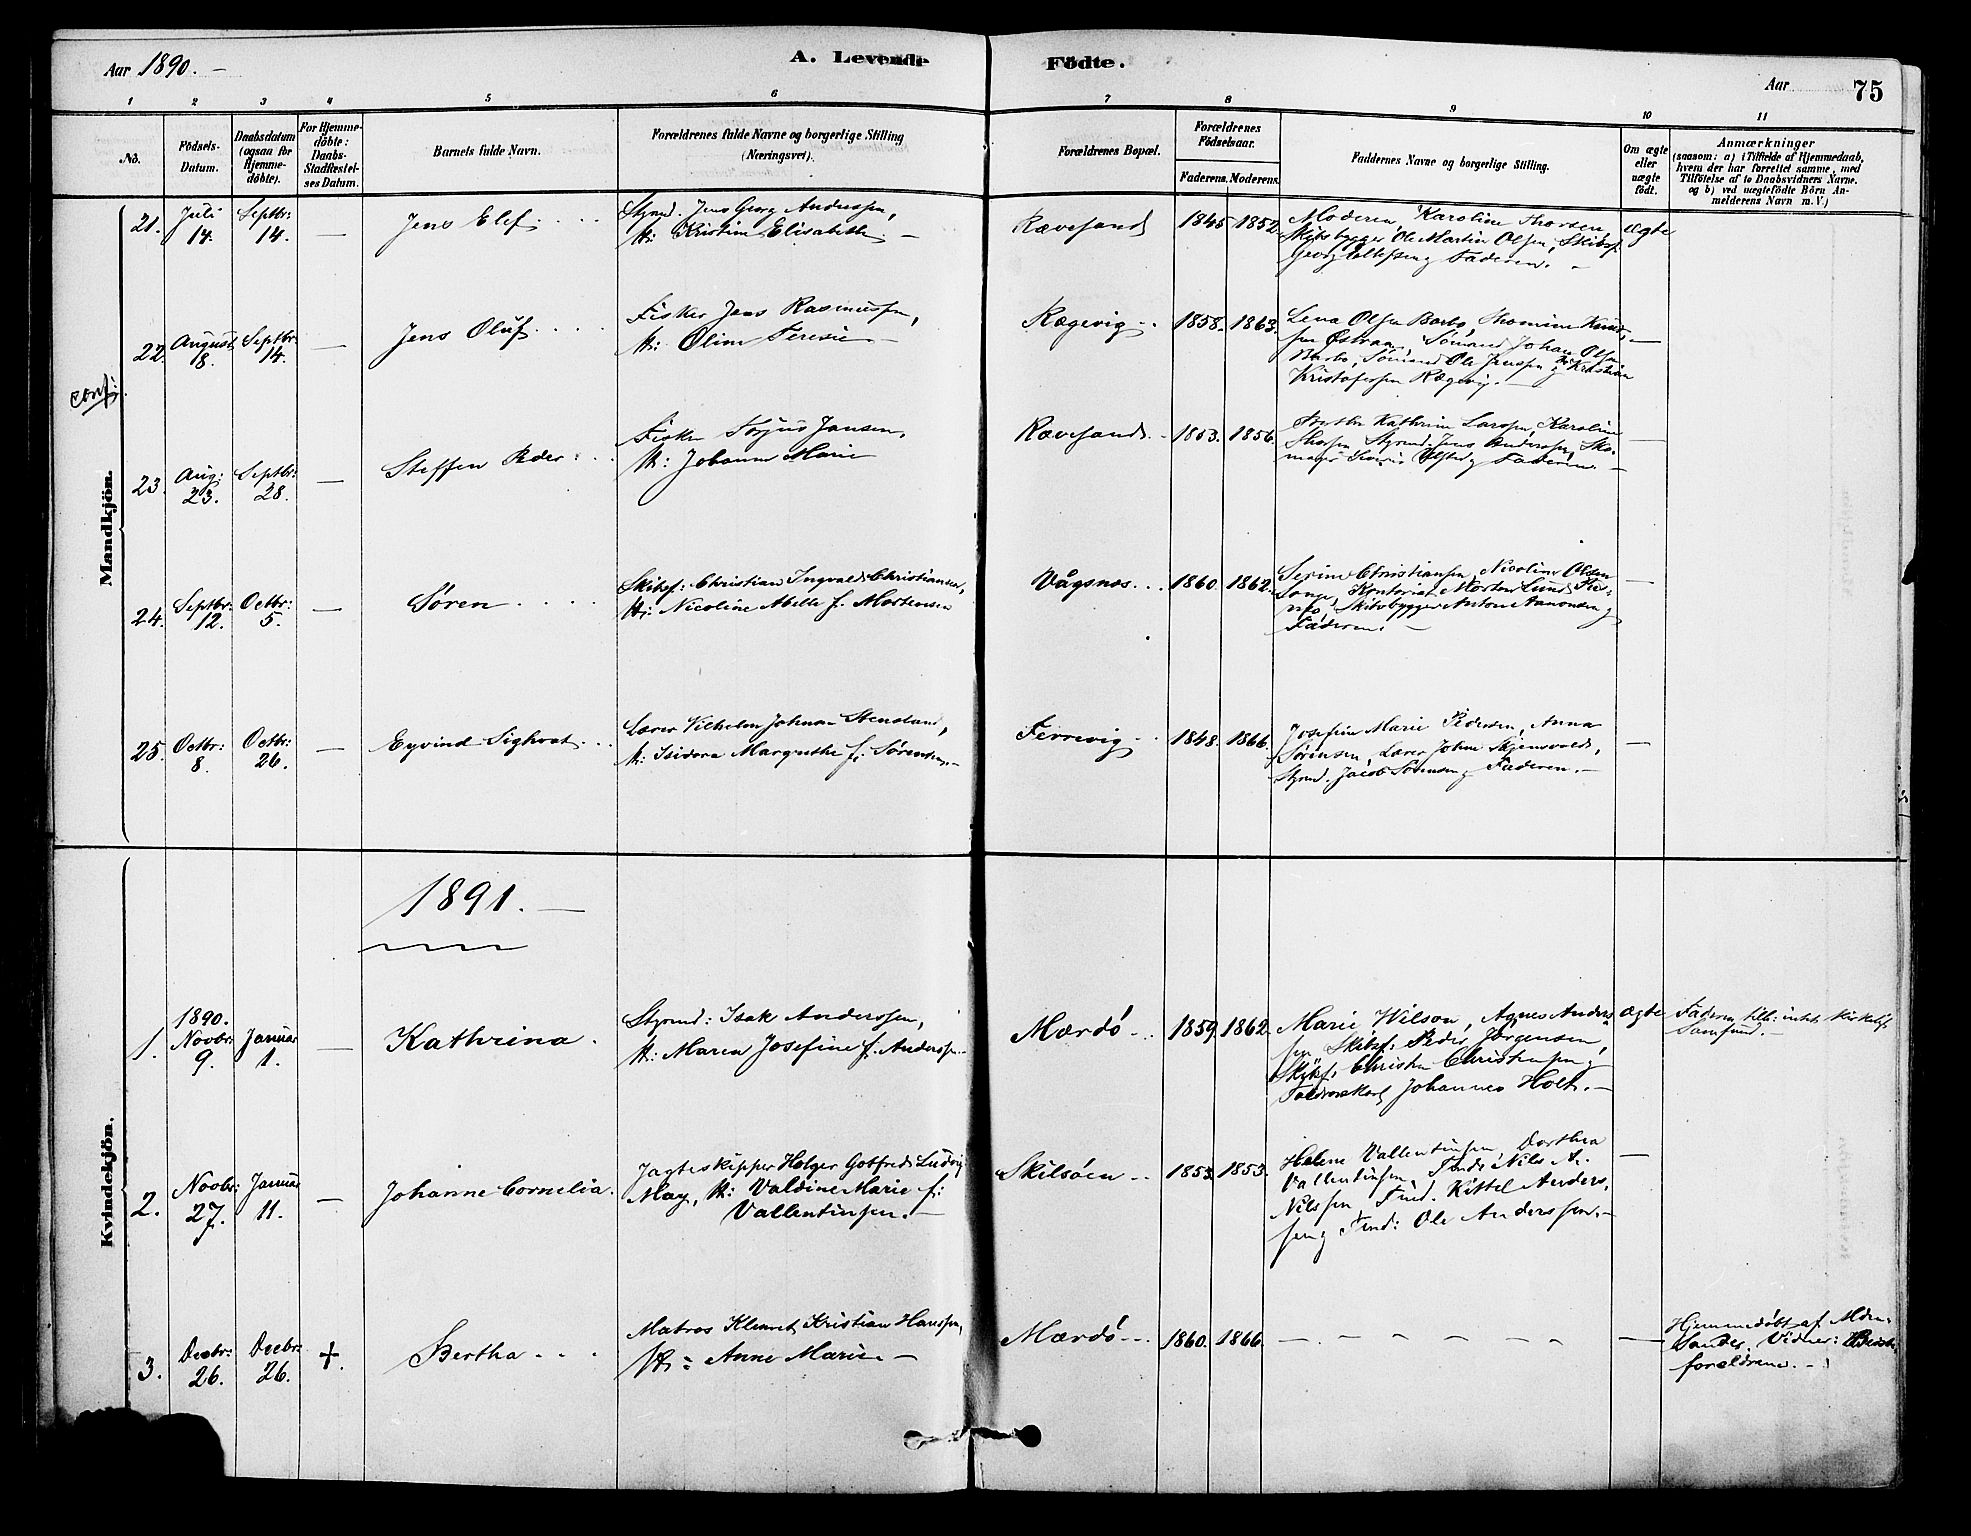 Aar 1890. –
A. Levende Födte.
Aar
75
1 2 3 4 5 6 7 8 9 10 11
No.
Födsels-
Datum.
Daabsdatum
(ogsaa for
Hjemme-
döbte).
For Hjemme-
döbte:
Daabs-
Stadfæstel-
ses Datum.
Barnets fulde Navn.
Forældrenes fulde Navne og borgerlige Stilling
(Næringsvei).
Forældrenes Bopæl.
Forældrenes
Födselsaar.
Faderens. Moderens.
Faddernes Navne og borgerlige Stilling.
Om ægte
eller
uægte
födt.
Anmærkninger
(saasom: a) i Tilfælde af Hjemmedaab,
hvem der har forrettet samme, med
Tilföielse af to Daabsvidners Navne.
og b) ved uægtefödte Börn An-
melderens Navn m. V.)
Mandkjön.
21. Juli 14. Septbr: 14. — Jens Elef
Styrmd. Jens Georg Anderssen,
H: Kristine Elisabeth. –
Rævesand 1845 1852.
Moderen, Karoline Thorsen
Skibsbygger Ole Martin Olsen, Skibsf.
Georg Faderen. –
ægte
22. August 18. Septbr: 14. — Jens Oluf
Fisker Jens Rasmussen,
H: Oline Teresie –
Rægevig 1858. 1863.
Lena Olsen Barbo, Thomine
Sømand Johan Olsen
Barbo, Sømand Ole Jenssen Kristian
Kristofersen Rægevig. –
—
conf:
23. Aug: 23. Septbr: 28. — Steffen Peder
Fisker Torjus Jansen,
H: Johanne Marie
Rævesand 1853. 1856.
Kathrine Larssen, Karoline
Thorsen Styrmd. Jens Anderssen, Sko-
mager Faderen –
—
24. Septbr: 12. Octbr: 5. — Søren
Skibsf: Christian Ingvald Christiansen,
H: Nicoline Mille f. Mortensen
Vågsnes 1860. 1862.
Serine Christiansen, Nicoline Olsen
Songe, Kontorist Morten Lund
Skibsbygger Anton Aanonsen
Faderen. –
—
25. Octbr: 8. Octbr: 26. — Eyvind Sighvat
Lærer Vilhelm Johnsen Stensland,
H: Isidora Margrethe f. Sørensen –
Fevrevig 1848. 1866.
Josefine Marie Pedersen, Anna
Sørensen, Lærer John
Styrmd. Jacob Sørensen Faderen. –
—
1891. —
Kvindekjön.
1. 1890. Novbr: 9. Januar 1. — Kathrina
Styrmd: Isak Anderssen,
H: Maren Josefine f. Anderssen –
Mærdö 1859. 1862.
Marie Wilson, Agnes Anders-
sen Skibsf: Peder Jörgensen,
Skibsf. Christen Christensen
Toldroerskarl Johannes Holt. –
ægte
Faderen tilh: intet kirkeligt
Samfund.
2. Novbr: 27. Januar 11. — Johanne Cornelia
Jagteskipper Holger Gotfred Ludvig
May, H: Valdine Marie f:
Vallentinsen. –
Skilsöen 1853. 1853.
Helene Vallentinsen, Dorthea
Vallentinsen, Tmd: Nils A.
Nilssen Tmd. Kittel Anders-
sen Tmd: Ole Anderssen. –
—
3. Decbr: 26. Decbr: 26. +. Bertha
Matros Klemet Kristian Hanssen,
H: Anne Marie –
Mærdö 1860. 1866.
— — — — — —
—
Hjemmedöbt af
Vidner:
forældrene. –